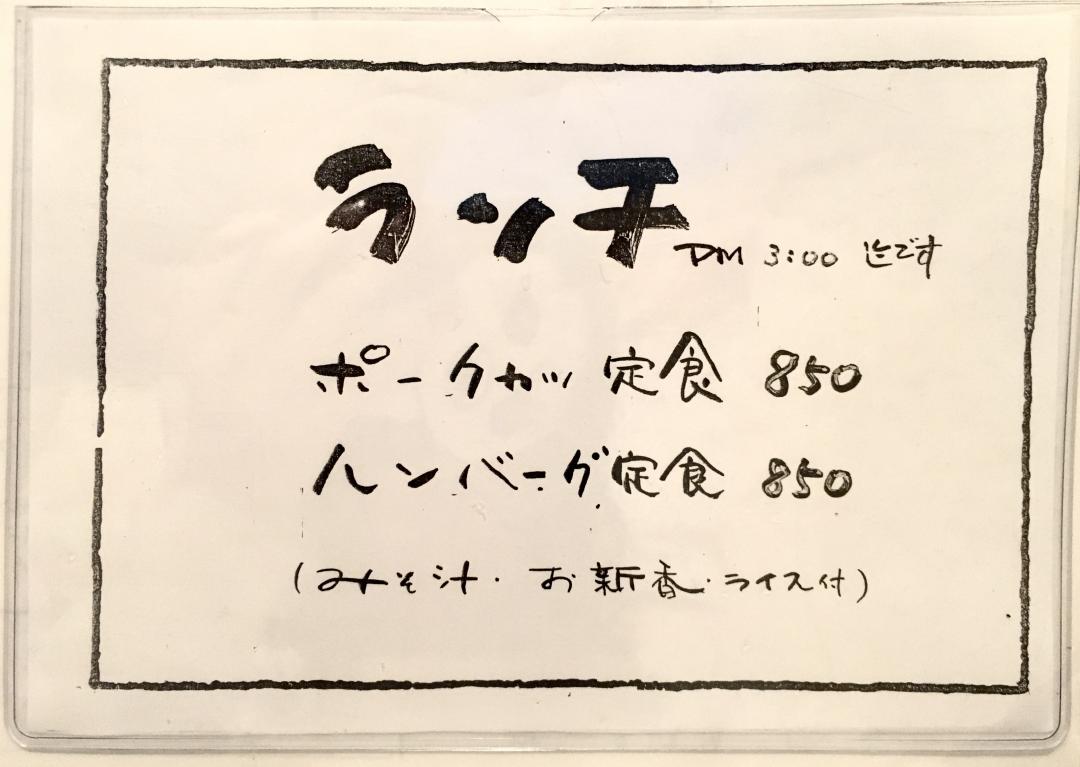 ランチ PM 3:00 迄です
ポークカツ 定食 850
ハンバーグ定食 850
(みそ汁・お新香・ライス付)